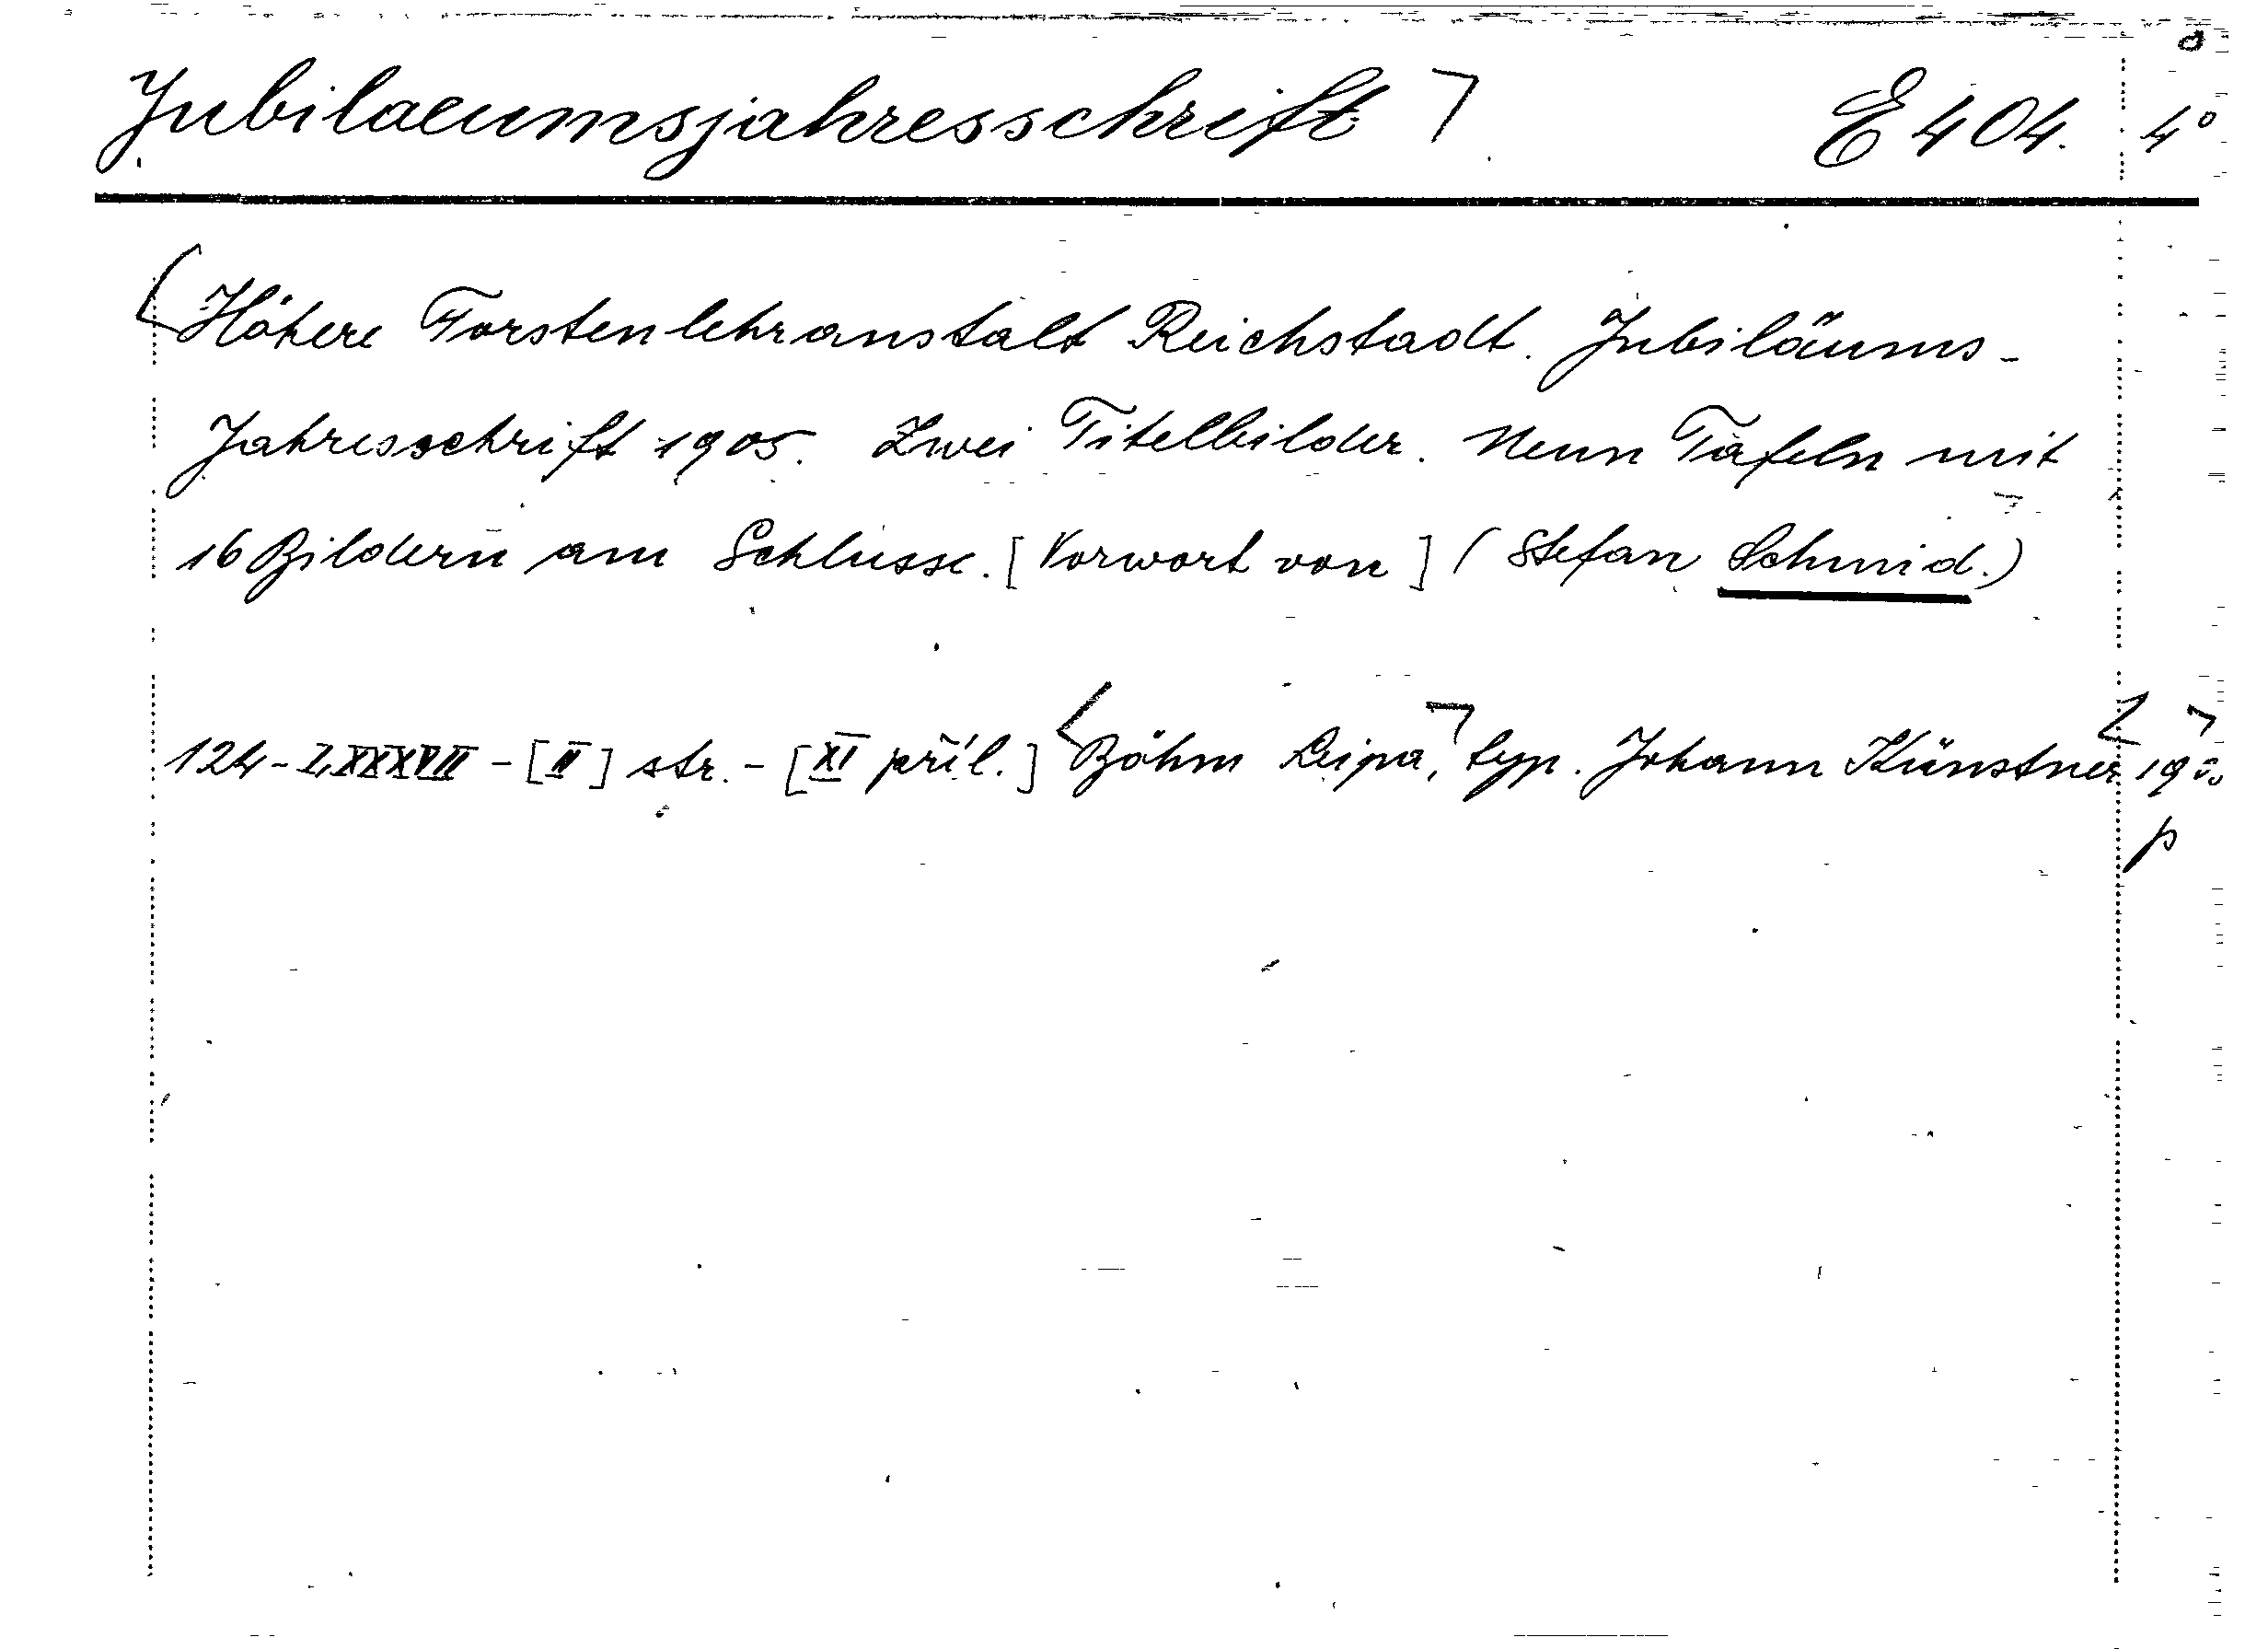 Jubilaeumsjahresschrift ⌉ E 404. 4°
Höhere Forstenlehranstalt Reichstadt. Jubiläums-
Jahresschrift 1905. Zwei Titelbilder. Neun Tafeln mit
16 Bildern am Schlusse. [Vorwort von] (Stefan Schmid.)
124-LXXXVII-[II] str.-[XI příl.] Böhm Leipa, typ. Johann Künstner
p